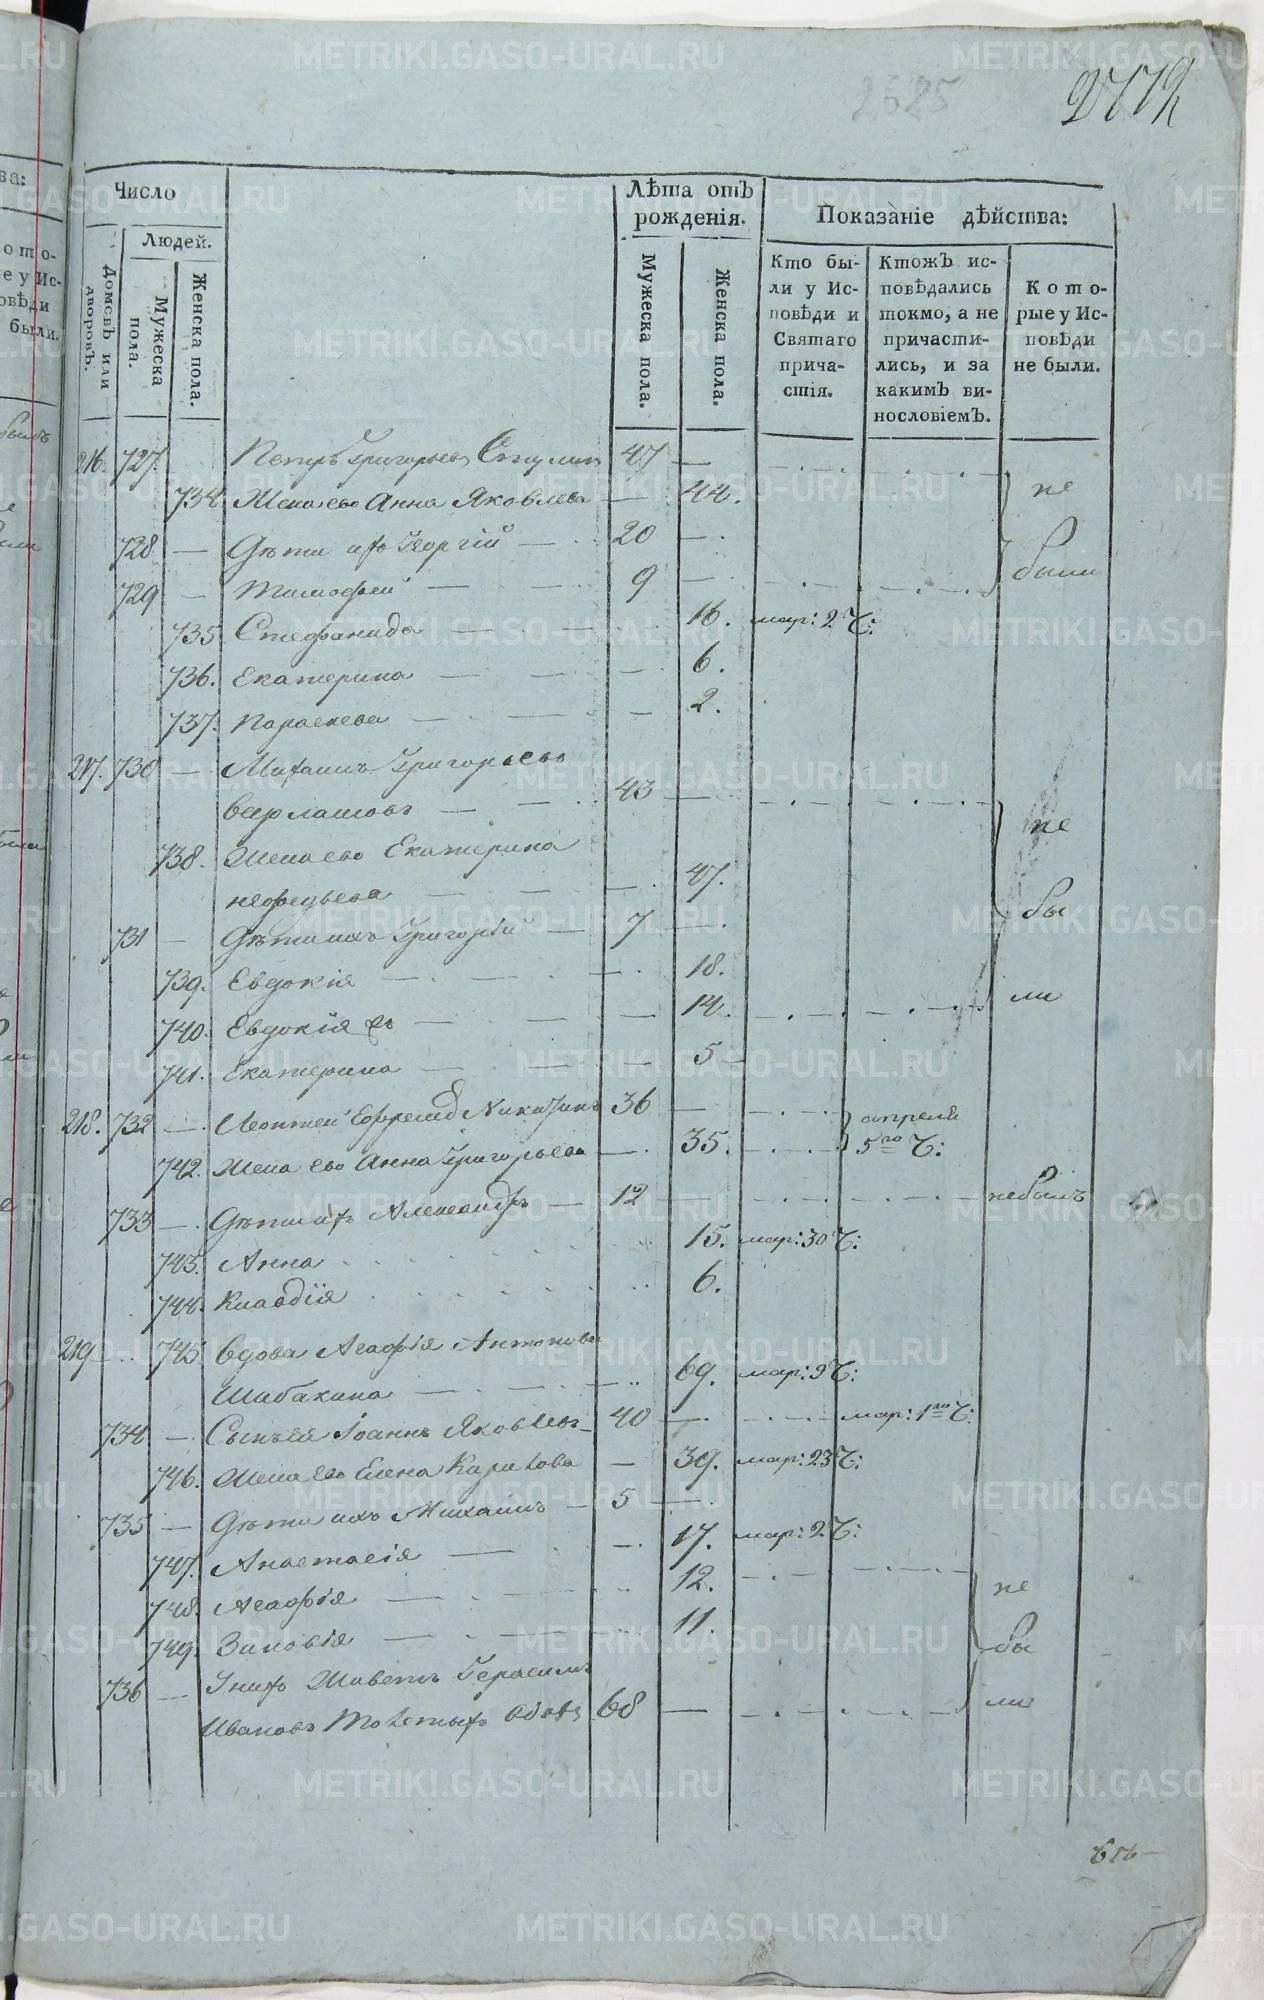 2685
2772
Число
Людей.
Домовъ или дворовъ.
Мужеска пола.
Женска пола.
Лѣта отъ рожденія.
Мужеска пола.
Женска пола.
Показаніе дѣйства:
Кто были у Исповѣди и Святаго причастія.
Ктожъ исповѣдались токмо, а не причастились, и за какимъ винословіемъ.
Которые у Исповѣди не были.
216. 727. Петръ Григорьевъ 47 —
734 Жена его Анна Яковлева — 44. не
728 — Дѣти ихъ Георгій — 20 —
729 — Тимофей — 9 — были
735 Стефанида — 16. мар: 2 Ч:
736. Екатерина — 6.
737. Параскева — 2.
217. 730 — Михаилъ Григорьевъ
Варлашовъ — 43 — не
738. Жена его Екатерина
Нефедьева — 47.
731 — Дѣти ихъ Григорій — 7 — бы
739. Евдокія — 18.
740. Евдокія 2ъ — 14. ли
741. Екатерина — 5
218. 732 — Леонтей Ефремовъ Никитинъ 36 — апреля
742. Жена его Анна Григорьева — 35. 5го Ч:
733 — Дѣти ихъ Александръ — 12 небылъ
743. Анна 15. мар: 30 Ч:
744. Клавдія 6.
219 745 Вдова Агафія Антонова
Шабакина — 69. мар: 9 Ч:
734 — Сынъ ея Іоаннъ Яковлевъ 40 — мар: 1го Ч:
746. Жена его Елена Карпова — 39. мар: 23 Ч:
735 — Дѣти ихъ Михаилъ — 5 —
747. Анастасія — 17. мар: 2 Ч:
748. Агафія — 12. не
749. Зиновія — 11. бы
736 — У нихъ Живетъ Герасимъ
Ивановъ 68 — ли
METRIKI.GASO-URAL.RU